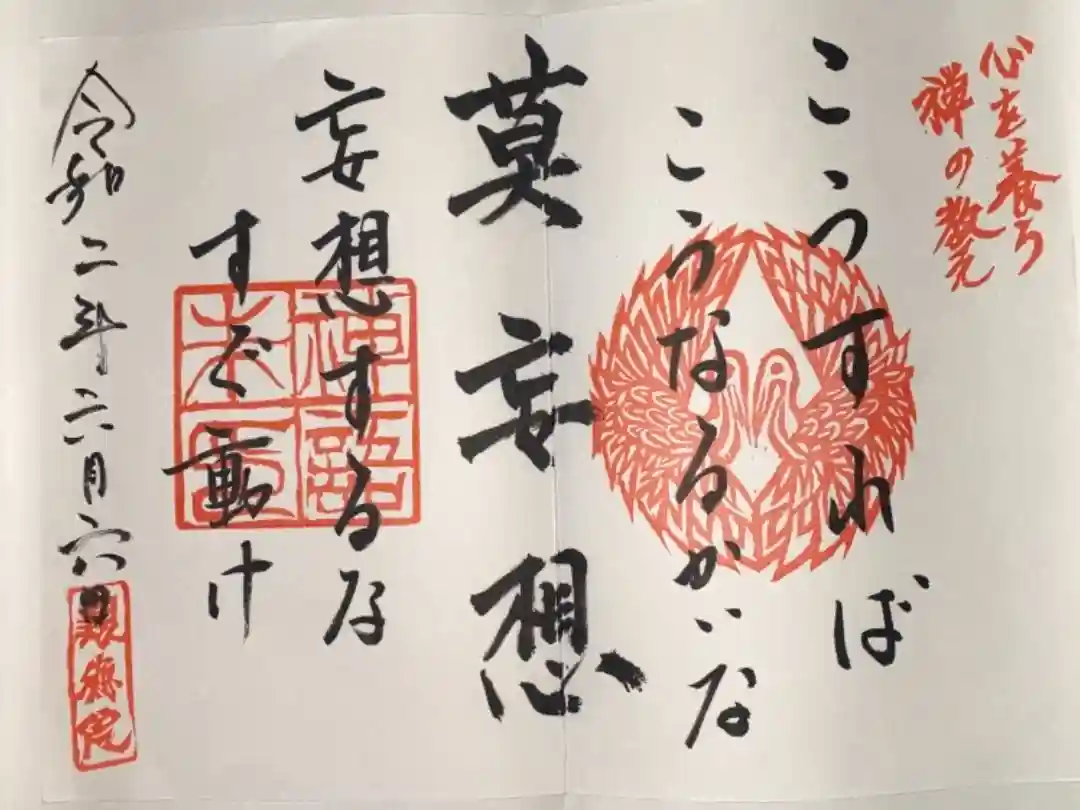 心を養う
禅の教え
こうすれば
こうなるかいな
莫妄想
妄想するな
すぐ動け
令和二年六月六日